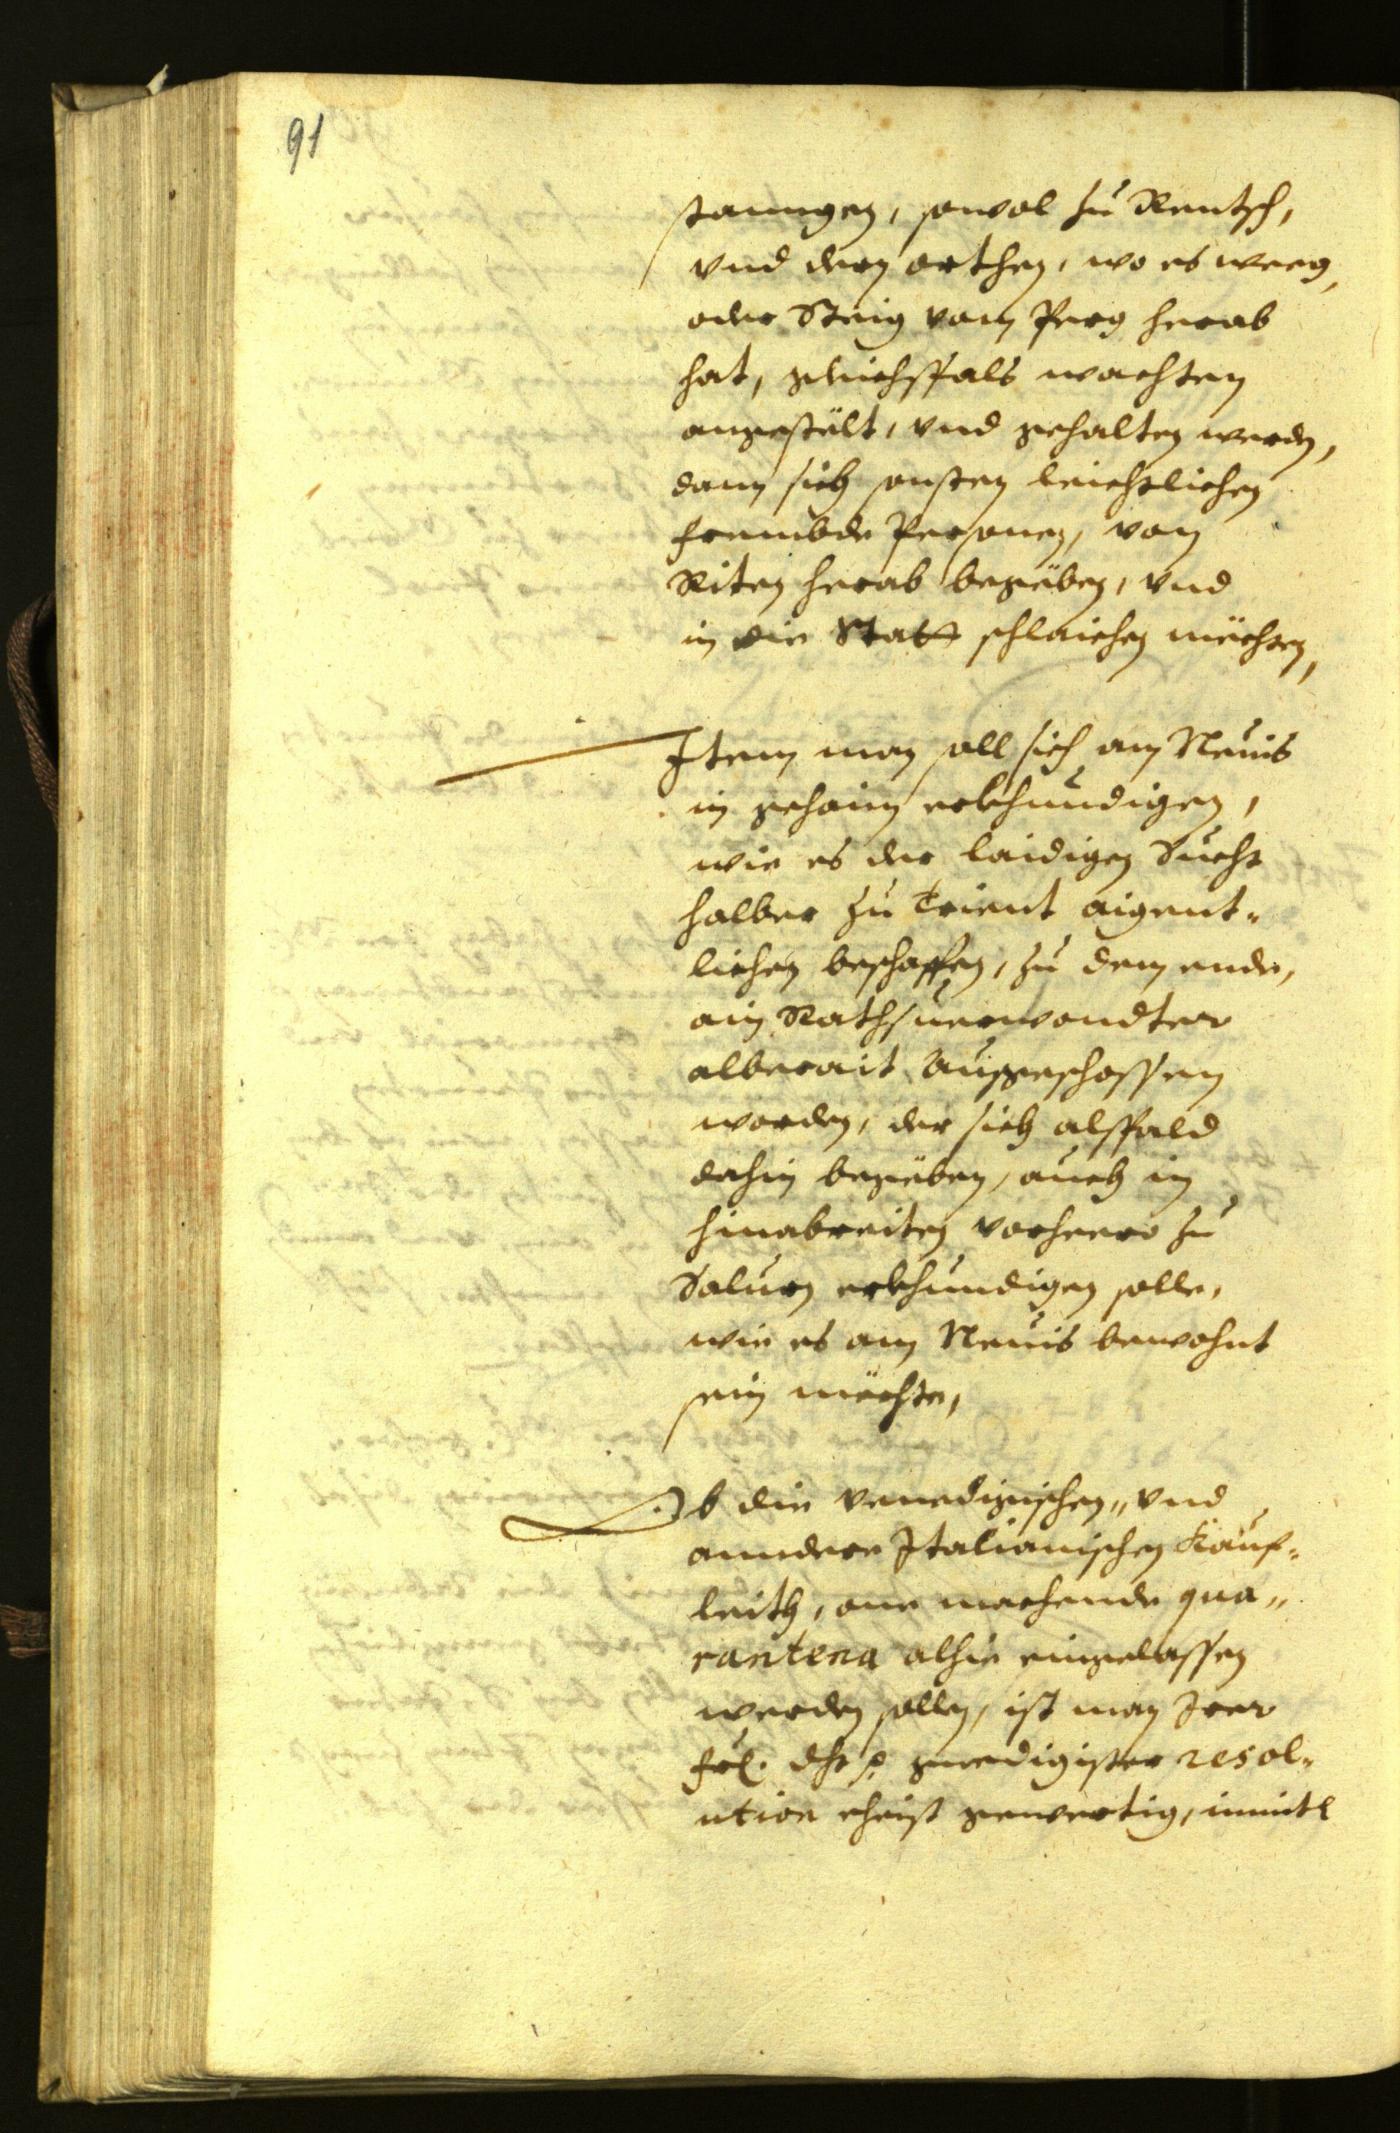 91
stanngen, sowol zu Rentsch,
vnd dern orthen, wo es weeg,
oder Steig vom Perg herab
hat, gleichsfals wachten
angestölt, vnd gehalten werden,
dann sich sonsten leichtlichen
frembde Personen, vom
Riten herab begëben, vnd
in die Statt schlaichen mechten,
Item man soll sich am Neuis
in gehaim erkhundigen,
wie es der laidigen Sucht
halber zu Trient aigent-
lichen beschaffen, zu dem ende,
ain Rathsuerwondter
alberait Ausgeschossen
worden, der sich alsfald
dahin begëben, auch in
hinabreiten vorheero zu
Salurn erkhundigen solle,
wie es am Neuis bewohnt
sein mechte,
Ob die Venedigischen,, vnd
anndere Italianischen Kauf-
leith, one machende qua,,
rantena alhie eingelassen
werden sollen, ist man Irer
frl. dht p. gnedigister resol-
ution ehist gewertig, inmitl